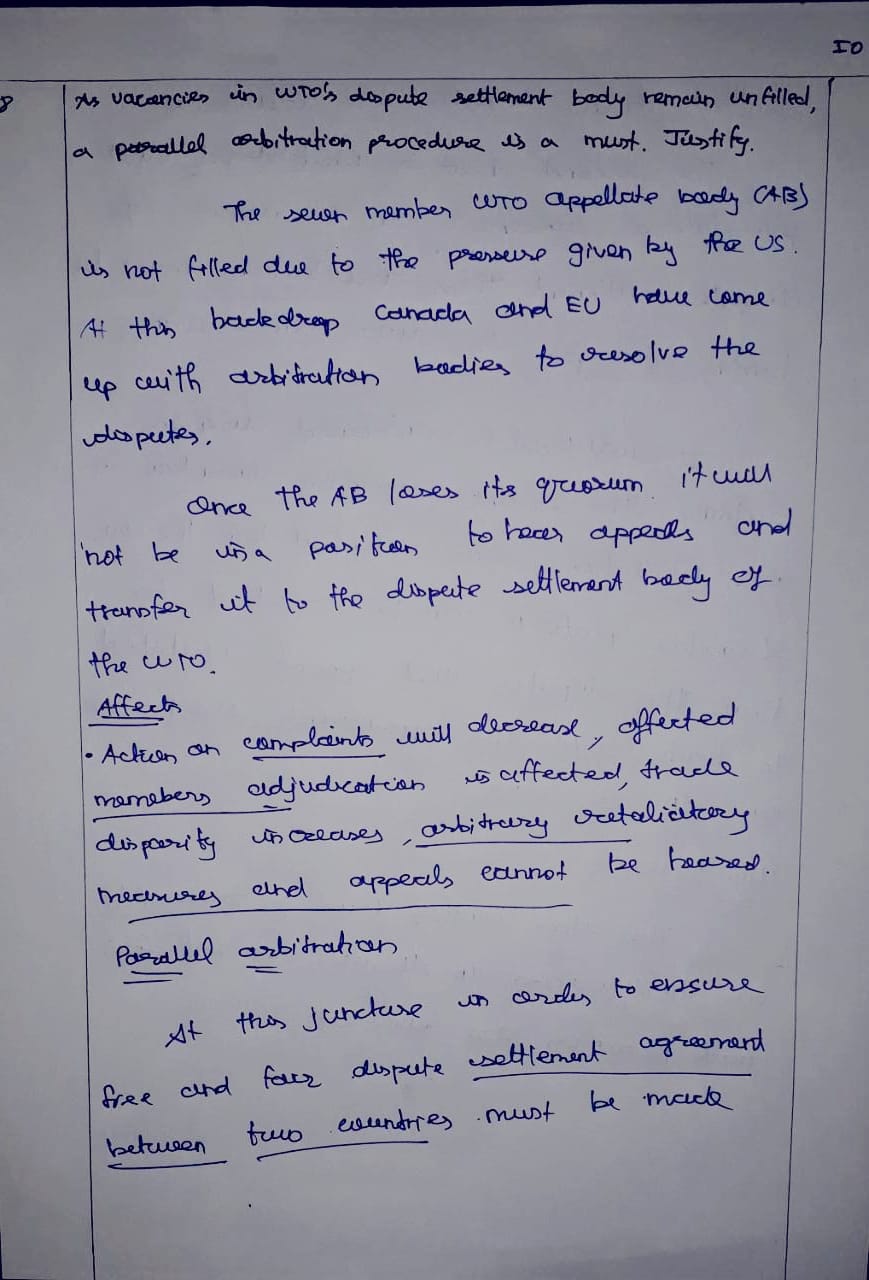 IO
8
As vacancies in WTO's dispute settlement body remain unfilled,
a parallel arbitration procedure is a must. Justify.
The seven member WTO appellate body (AB)
is not filled due to the pressure given by the US.
At this backdrop Canada and EU have come
up with arbitration bodies to resolve the
disputes.
Once the AB loses its quorum it will
not be in a position to hear appeals and
transfer it to the dispute settlement body of
the WTO.
Affects
• Action on complaints will decrease, affected
memebers adjudication is affected, trade
disparity increases, arbitrary retaliatory
measures and appeals cannot be heared.
Parallel arbitration
At this juncture in order to ensure
free and fair dispute settlement agreement
between two countries must be made